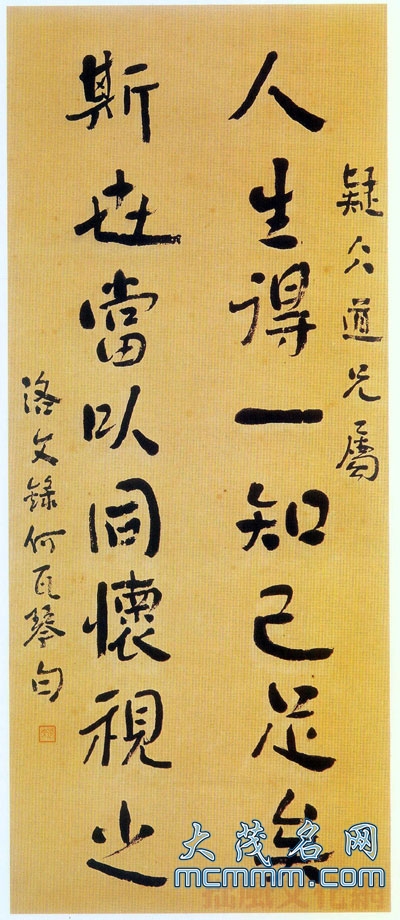 疑仌道兄屬
人生得一知己足矣
斯世當以同懷視之
洛文錄何瓦琴句
大茂名网
mcmmm.com